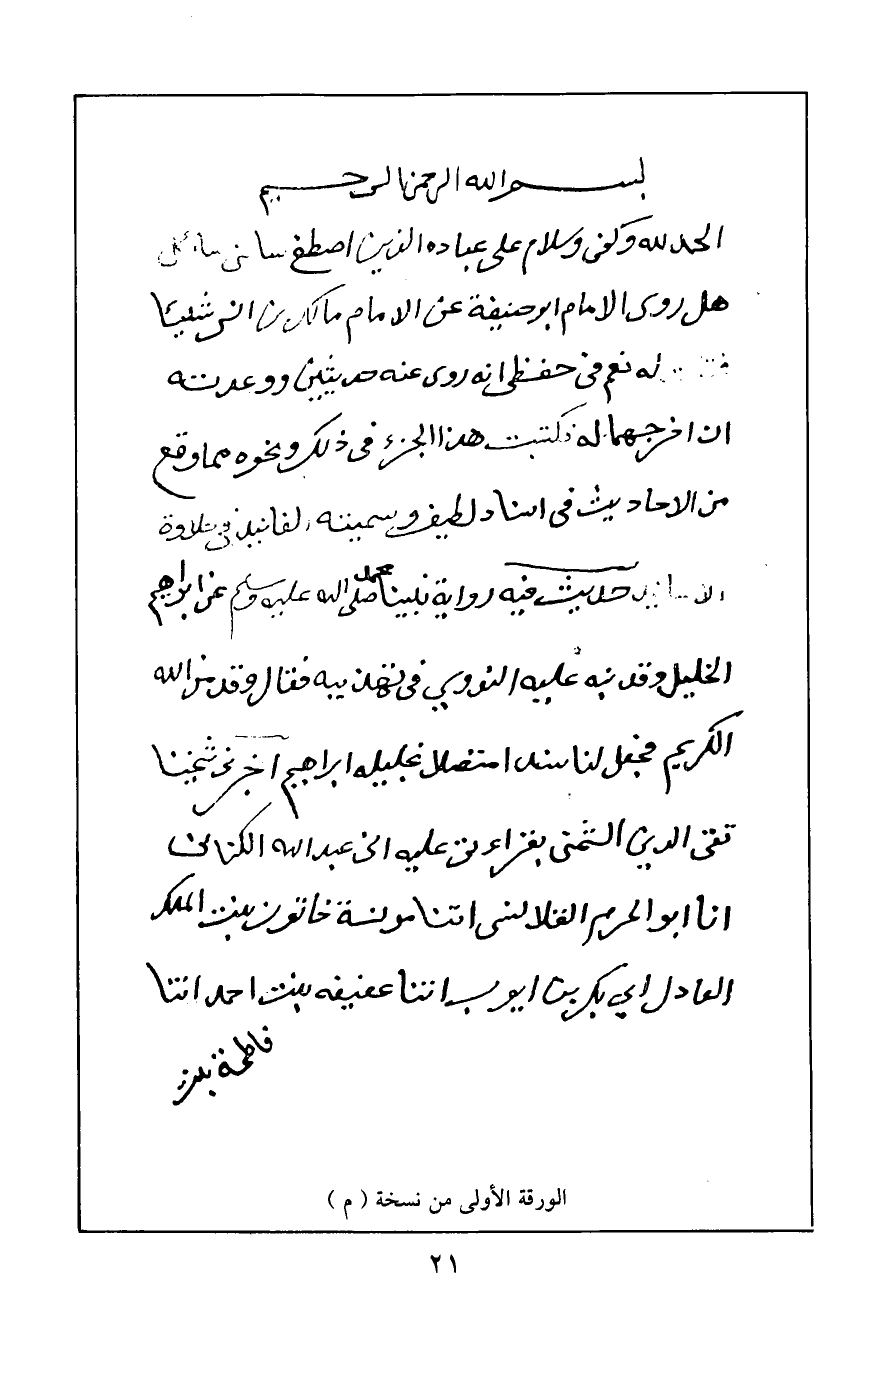 بسم الله الرحمن الرحيم
الحمد لله وكفى وسلام على عباده الذين اصطفى سالني سائل
هل روى الامام ابو حنيفة عن الامام مالك بن انس شيئا
له نعم في حفظي انه روى عنه حديثين ووعدته
ان اخرجهما له فكتبت هذا الجزء في ذلك ونحوه مما وقع
من الاحاديث في اسناد لطيف وسميته الفانيد في حلاوة
الاسانيد حديث فيه رواية نبينا محمد صلى الله عليه وسلم عن ابراهيم
الخليل وقد نبه عليه النووي في تهذيبه فقال وقد من الله
الكريم فجعل لنا سندا متصلا بخليله ابراهيم اخبرني شيخنا
تقي الدين الشمني بقراءتي عليه انا عبد الله الكناني
انا ابو الحرم القلانسي اتنا مونسة خاتون بنت الملك
العادل ابي بكر بن ايوب انتنا عفيفه بنت احمد انتنا
فاطمة بنت
الورقة الأولى من نسخة ( م )
٢١